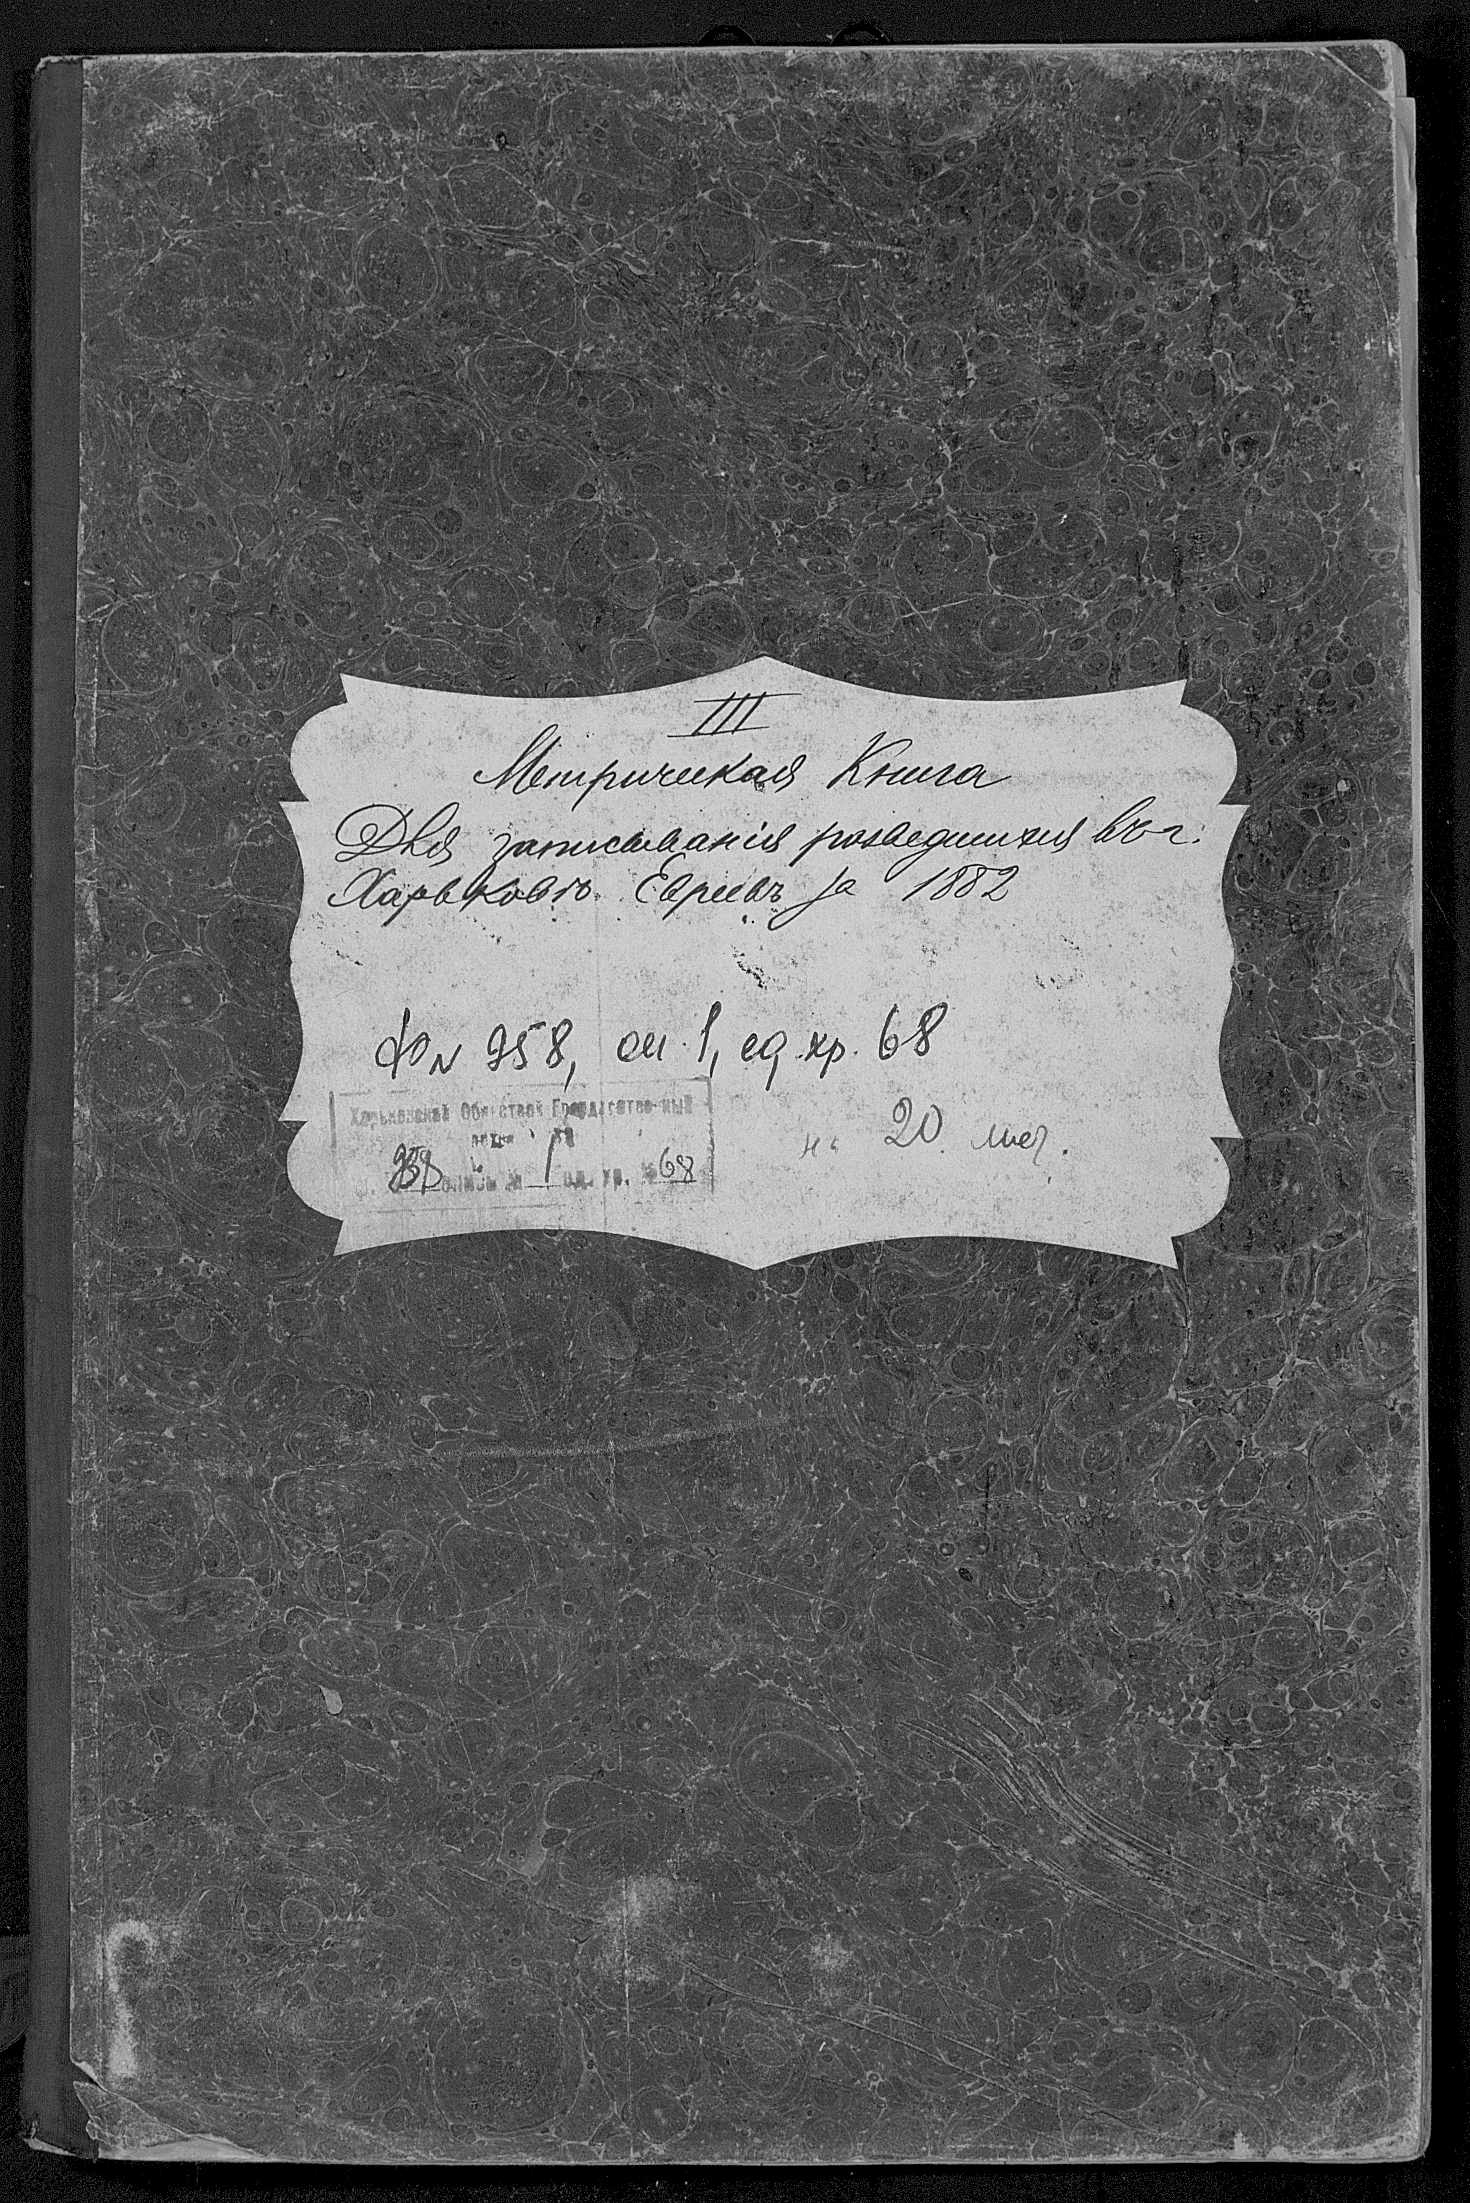 III
Метрическая Книга
Для записыванія розведшихся въ г.
Харьковѣ Евреевъ за 1882
ф № 958, оп. 1, ед. хр. 68
Харьковский Областной Государственный
958 описи № 1 ед. хр. № 68
на 20 лист.